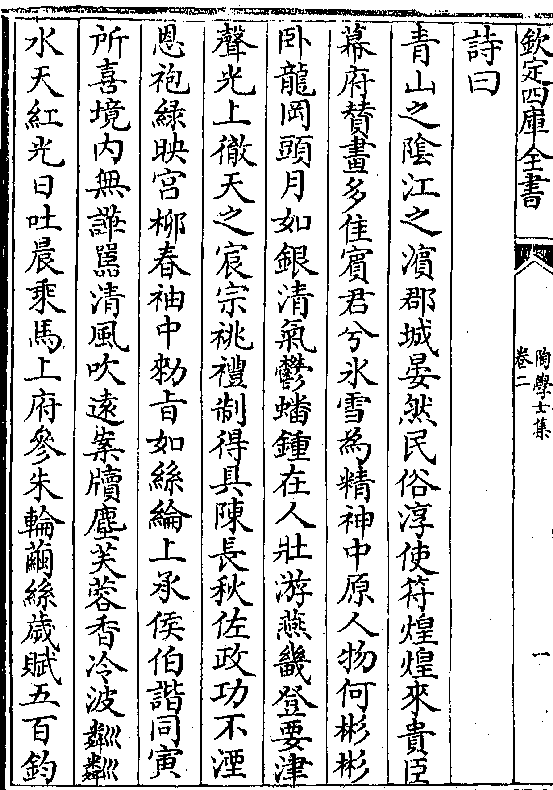 欽定四庫全書
陶學士集
卷二
一
詩曰
青山之陰江之濵郡城晏然民俗淳使符煌煌來貴臣
幕府賛畫多佳賓君兮氷雪為精神中原人物何彬彬
卧龍岡頭月如銀清氣鬱蟠鍾在人壯游燕畿登要津
聲光上徹天之宸宗祧禮制得具陳長秋佐政功不湮
恩袍緑映宫柳春袖中勑旨如絲綸上承侯伯諧同寅
所喜境内無譁嚚清風吹逺案牘塵芙蓉香冷波粼粼
水天紅光日吐晨乘馬上府參朱輪繭絲歲賦五百鈞